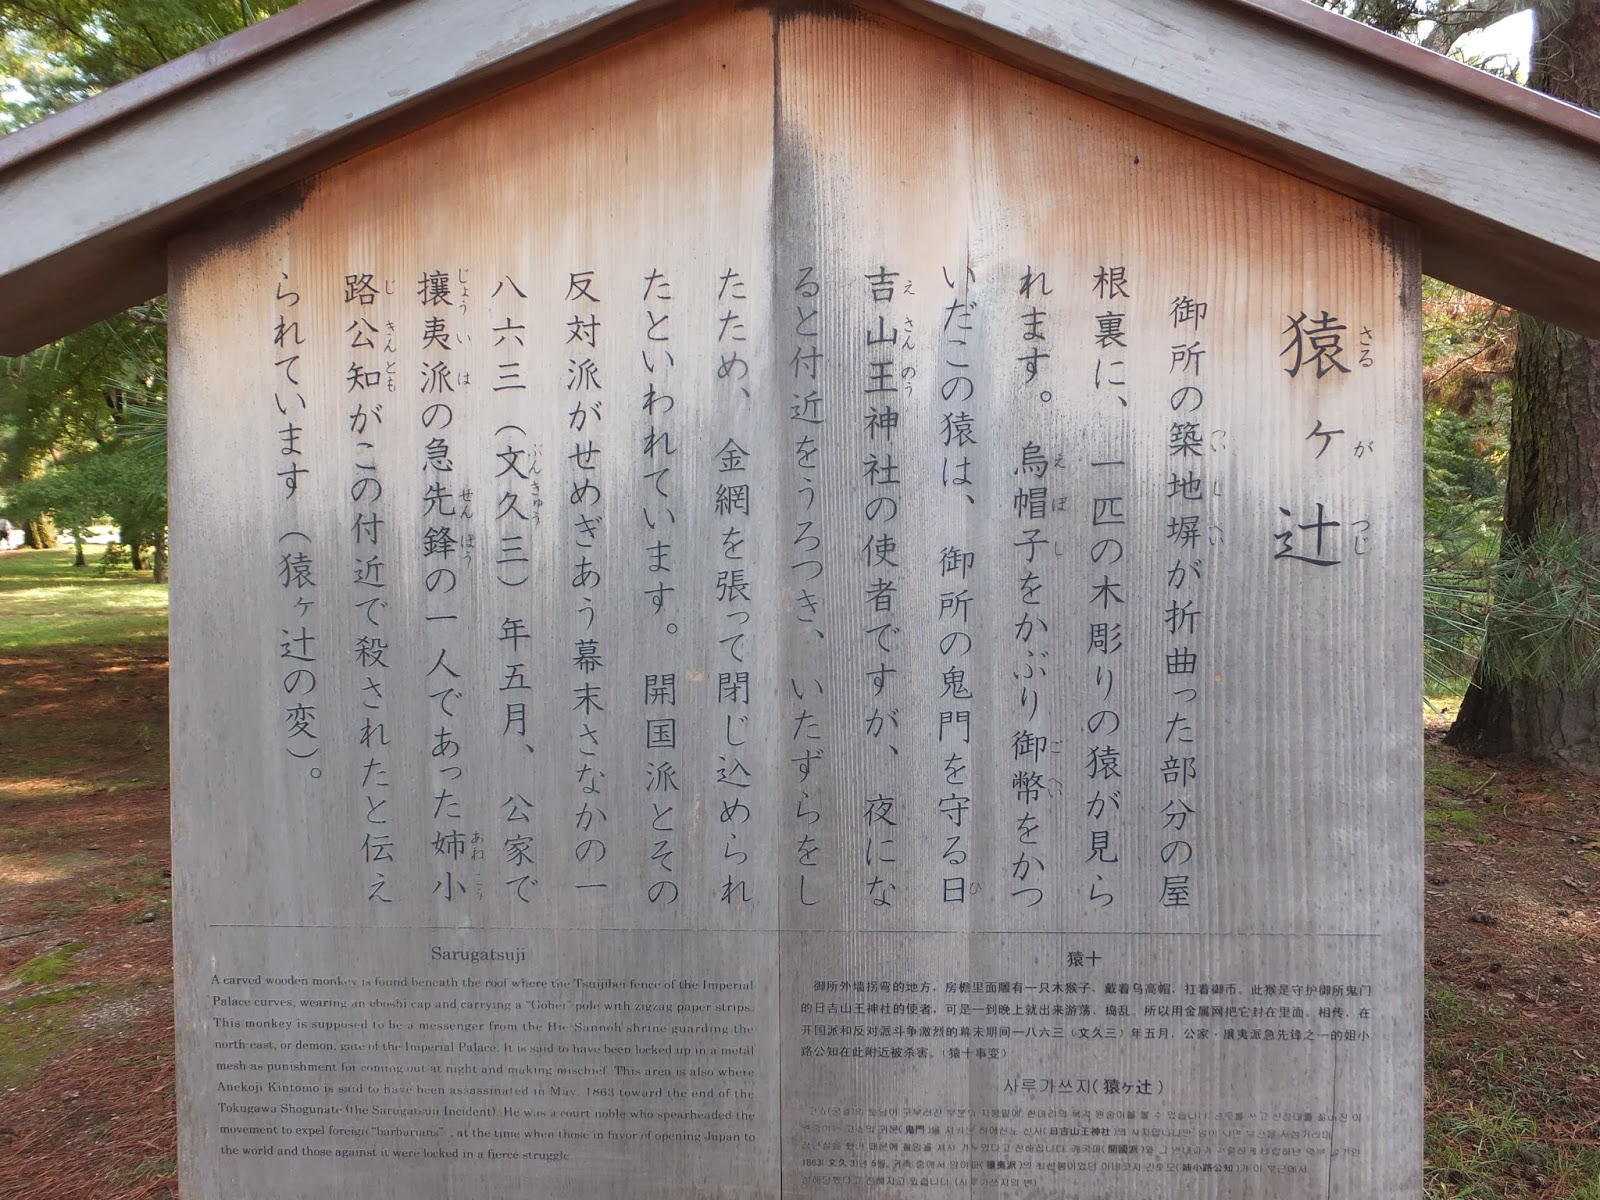 猿ヶ辻
御所の築地塀が折曲った部分の屋
根裏に、一匹の木彫りの猿が見ら
れます。烏帽子をかぶり御幣をかつ
いだこの猿は、御所の鬼門を守る日
吉山王神社の使者ですが、夜にな
ると付近をうろつき、いたずらをし
たため、金網を張って閉じ込められ
たといわれています。開国派とその
反対派がせめぎあう幕末さなかの一
八六三(文久三)年五月、公家で
攘夷派の急先鋒の一人であった姉小
路公知がこの付近で殺されたと伝え
られています(猿ヶ辻の変)。
Sarugatsuji
A carved wooden monkey is found beneath the roof where the Tsuijibei fence of the Imperial
Palace curves, wearing an eboshi cap and carrying a "Gohei" pole with zigzag paper strips.
This monkey is supposed to be a messenger from the Hie-Sannoh shrine guarding the
north-east, or demon, gate of the Imperial Palace. It is said to have been locked up in a metal
mesh as punishment for coming out at night and making mischief. This area is also where
Anekoji Kintomo is said to have been assassinated in May, 1863 toward the end of the
Tokugawa Shogunate (the Sarugatsuji Incident). He was a court noble who spearheaded the
movement to expel foreign "barbarians", at the time when those in favor of opening Japan to
the world and those against it were locked in a fierce struggle.
猿十
御所外墙拐弯的地方，房檐里面雕有一只木猴子，戴着乌高帽，扛着御币。此猴是守护御所鬼门
的日吉山王神社的使者，可是一到晚上就出来游荡，捣乱，所以用金属网把它封在里面。相传，在
开国派和反对派斗争激烈的幕末期间一八六三（文久三）年五月，公家·攘夷派急先锋之一的姐小
路公知在此附近被杀害。（猿十事变）
사루가쓰지(猿ヶ辻)
(鬼門)
(日吉山王神社)
(開國派)
1863(文久3)년 5월, (攘夷派) (姉小路公知)